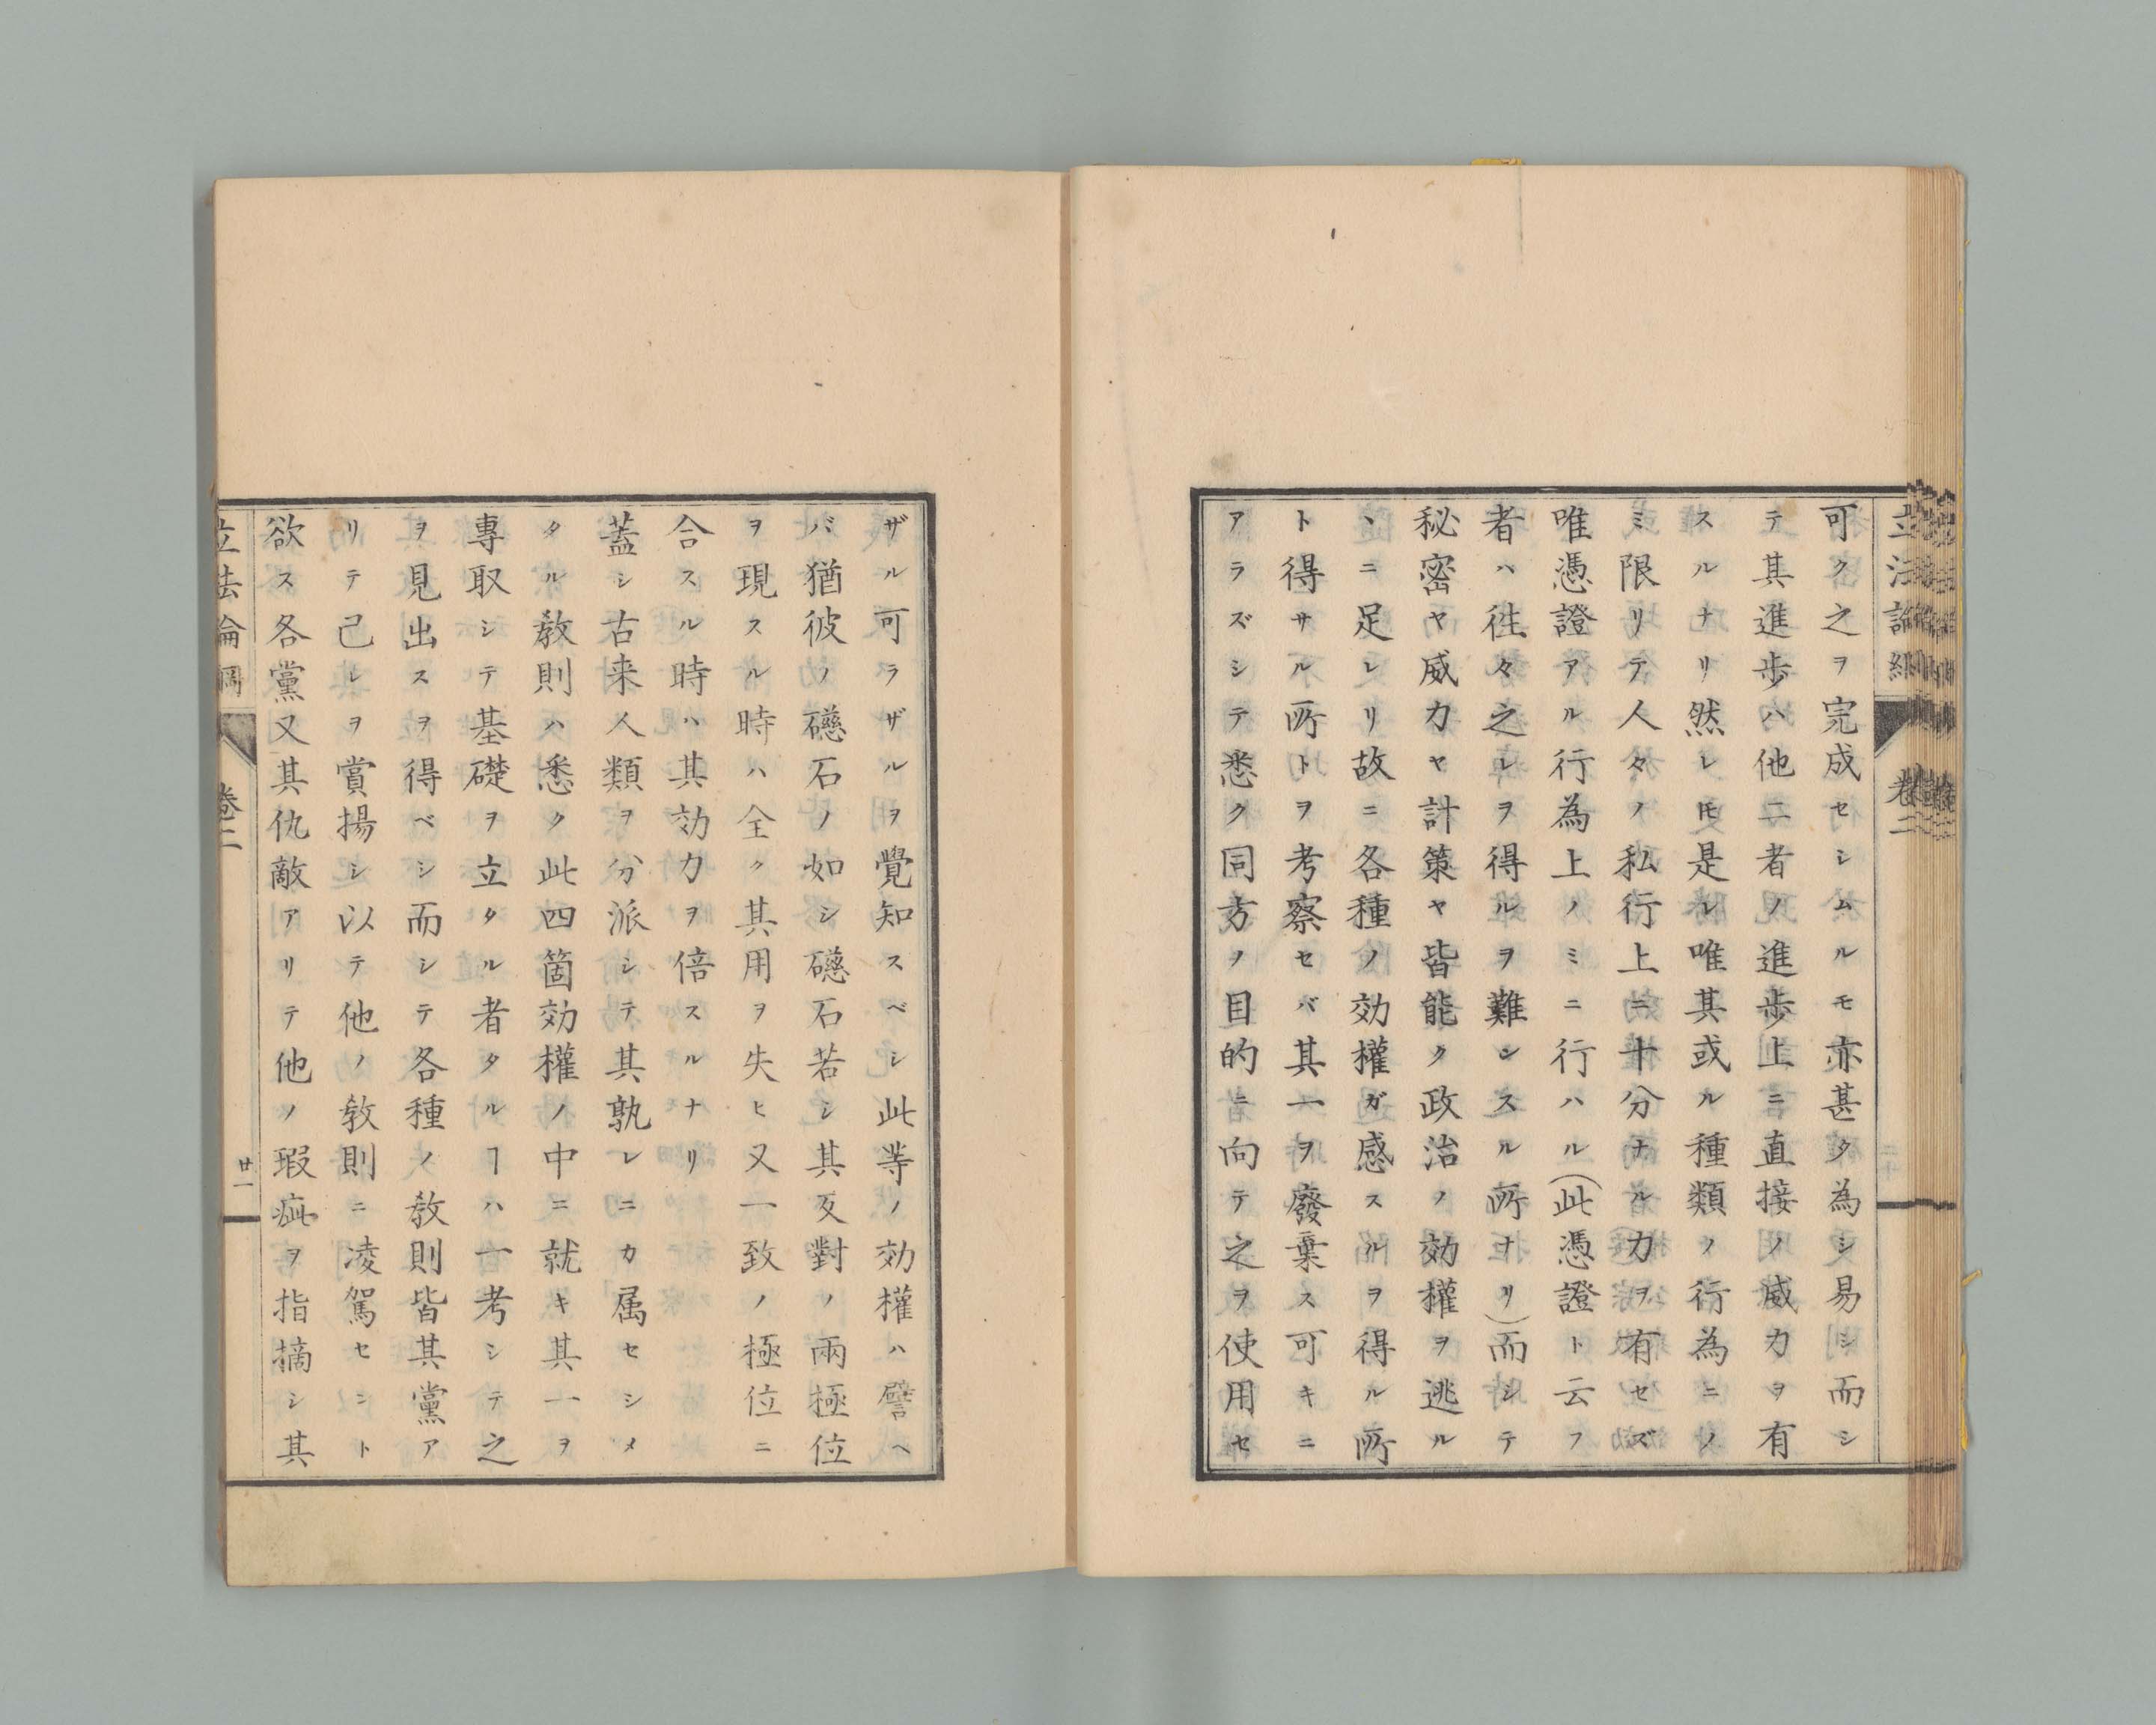 立法論綱 卷二
可ク之ヲ完成セシムルモ亦甚タ為シ易シ而シ
テ其進歩ハ他二者ノ進歩上ニ直接ノ威力ヲ有
スルナリ然レ𪜈是レ唯其或ル種類ノ行為ニノ
ミ限リテ人々ノ私行上ニ十分ナル力ヲ有セズ
唯憑證アル行為上ノミニ行ハル(此憑證ト云フ
者ハ徃々之レヲ得ルヲ難シスル所ナリ)而シテ
秘密ヤ威力ヤ計策ヤ皆能ク政治ノ効權ヲ逃ル
ヽニ足レリ故ニ各種ノ効權ガ感スルヲ得ル所
ト得サル所トヲ考察セバ其一ヲ廢棄ス可キニ
アラズシテ悉ク同方ノ目的ニ向テ之ヲ使用セ
ザル可ラザルヲ覺知スベシ此等ノ効權ハ譬ヘ
バ猶彼ノ礠石ノ如シ礠石若シ其反對ノ兩極位
ヲ現スル時ハ全ク其用ヲ失ヒ又一致ノ極位ニ
合スル時ハ其効力ヲ倍スルナリ
蓋シ古来人類ヲ分派シテ其孰レニカ属セシメ
タル教則ハ悉ク此四箇効權ノ中ニ就キ其一ヲ
專取シテ基礎ヲ立タル者タルヿハ一考シテ之
ヲ見出スヲ得ベシ而シテ各種ノ教則皆其黨ア
リテ己レヲ賞揚シ以テ他ノ教則ニ凌駕セシト
欲ス各黨又其仇敵アリテ他ノ瑕疵ヲ指摘シ其
立法論綱 卷二 廿一